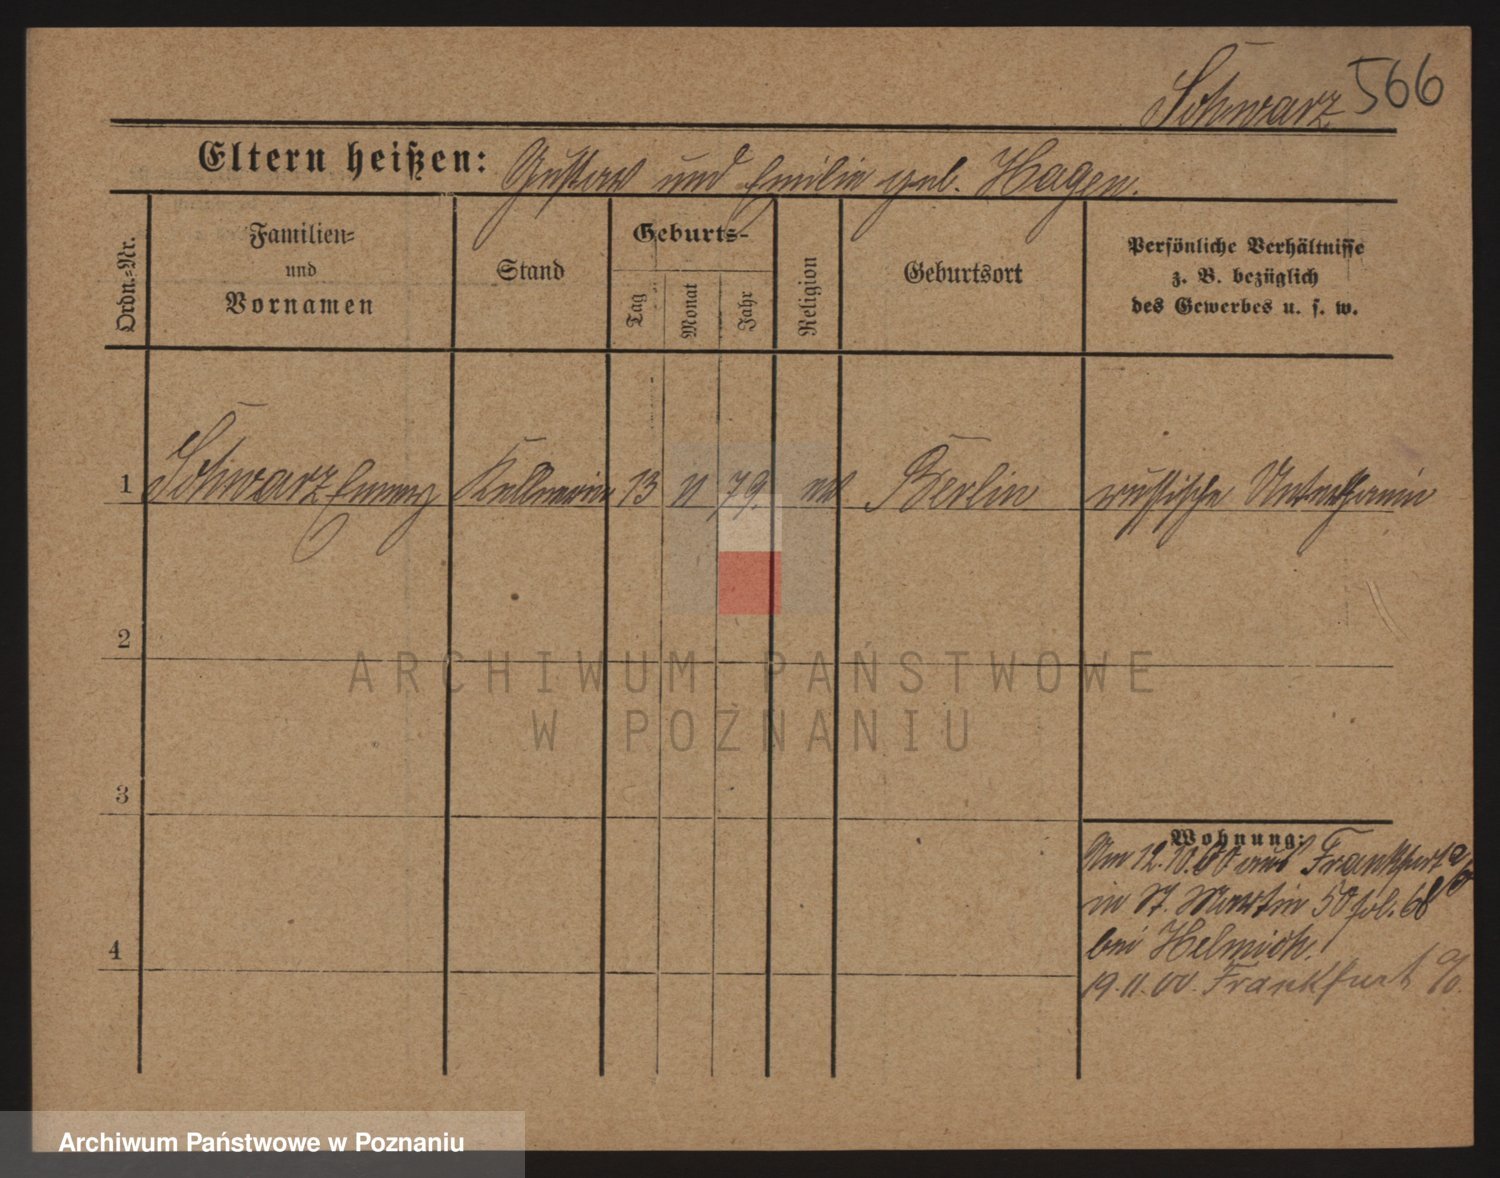 Schwarz 566
Eltern heißen: Gustav und Emilie geb. Hagen.
Ordn.-Nr.
Familien-
und
Vornamen
Stand
Geburts-
Tag
Monat
Jahr
Religion
Geburtsort
Persönliche Verhältnisse
z. B. bezüglich
des Gewerbes u. s. w.
1 Schwarz Kellnerin 13 11 79. ev Berlin russische Unterthanin
2
ARCHIWUM PAŃSTWOWE
W POZNANIU
3
Wohnung:
Am 12.10.00 aus Frankfurt a/O
in St. Martin 50 fol. 68
bei Helmich.
4
19.11.00. Frankfurt a/O.
Archiwum Państwowe w Poznaniu